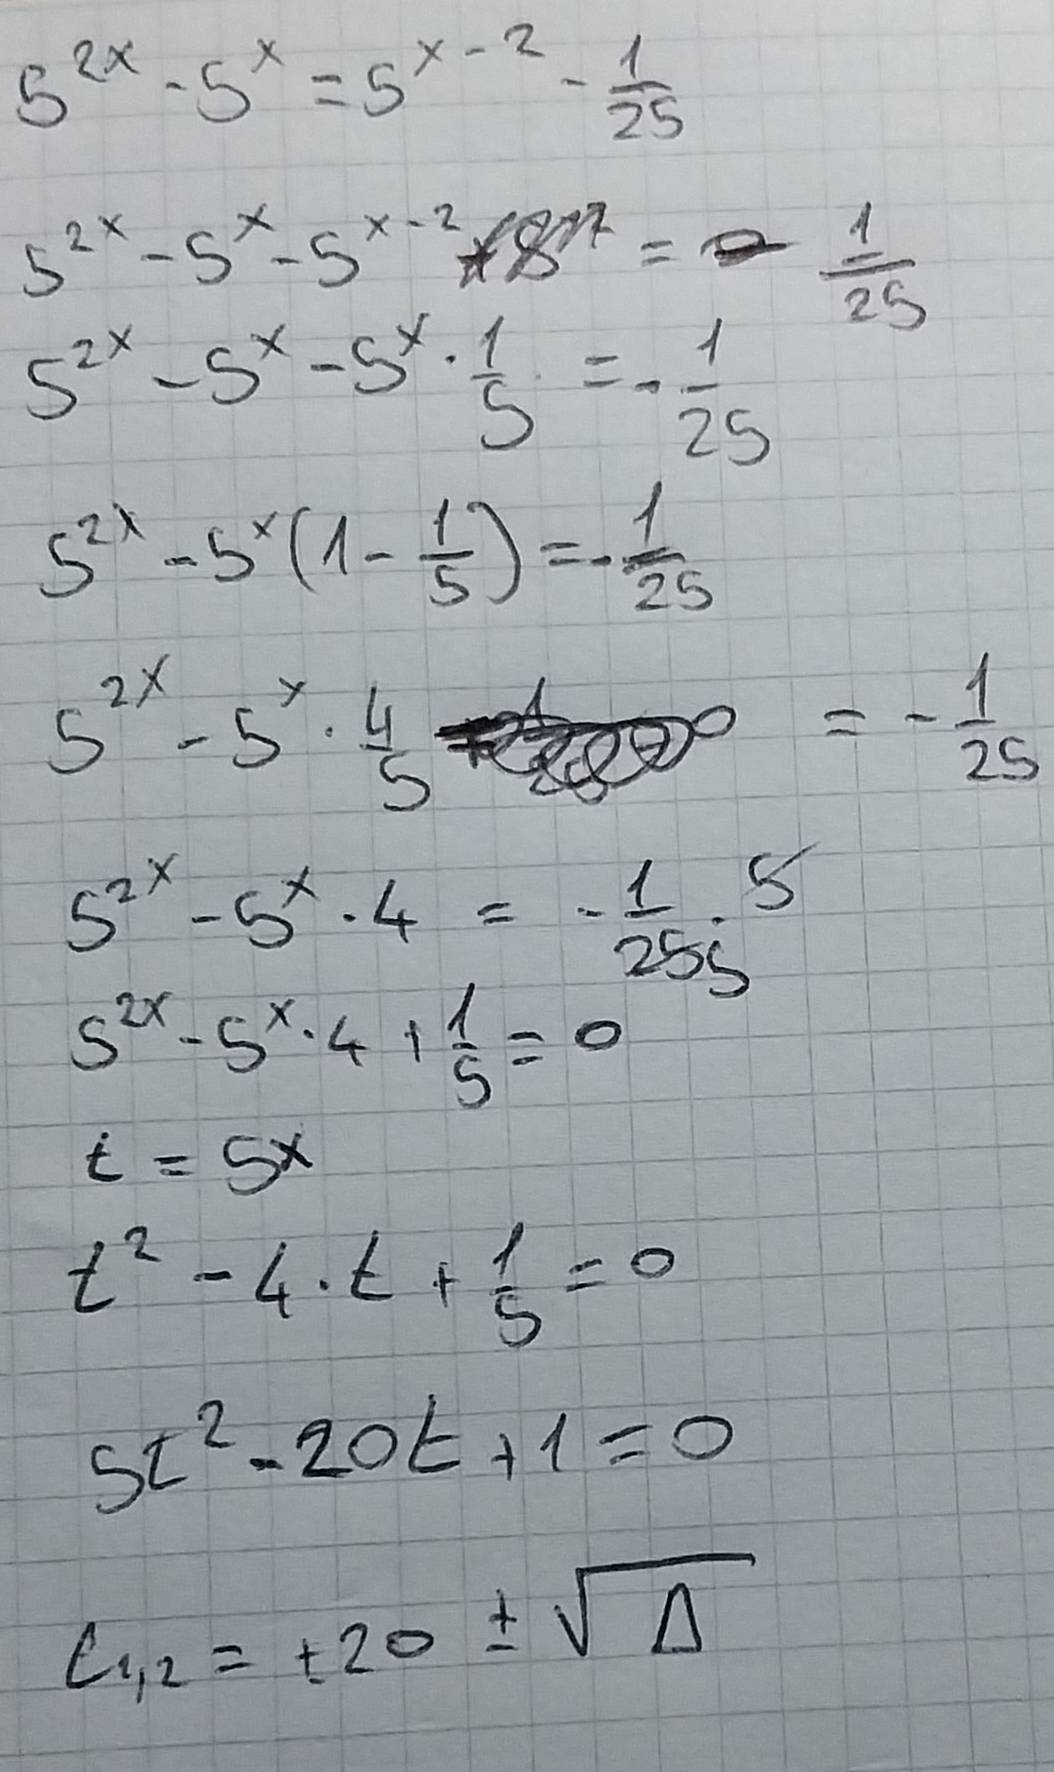 5^{2x} - 5^x = 5^{x-2} - \frac{1}{25}
5^{2x} - 5^x - 5^{x-2} = - \frac{1}{25}
5^{2x} - 5^x - 5^x · \frac{1}{5} = - \frac{1}{25}
5^{2x} - 5^x (1 - \frac{1}{5}) = - \frac{1}{25}
5^{2x} - 5^x · \frac{4}{5} = - \frac{1}{25}
5^{2x} - 5^x · 4 = - \frac{1}{25 5} · 5
5^{2x} - 5^x · 4 + \frac{1}{5} = 0
t = 5^x
t^2 - 4 · t + \frac{1}{5} = 0
5t^2 - 20t + 1 = 0
t_{1,2} = +20 ± \sqrt{Δ}